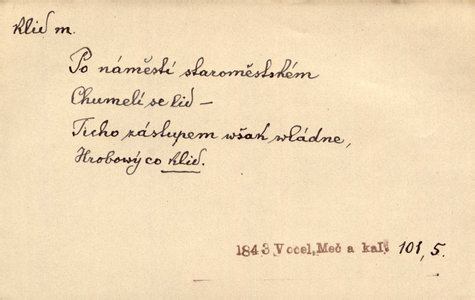 klid m.
Po náměstí staroměstském
Chumelí se lid –
Ticho zástupem však vládne,
Hrobový co klid.
1843 Vocel, Meč a kal. 101, 5.